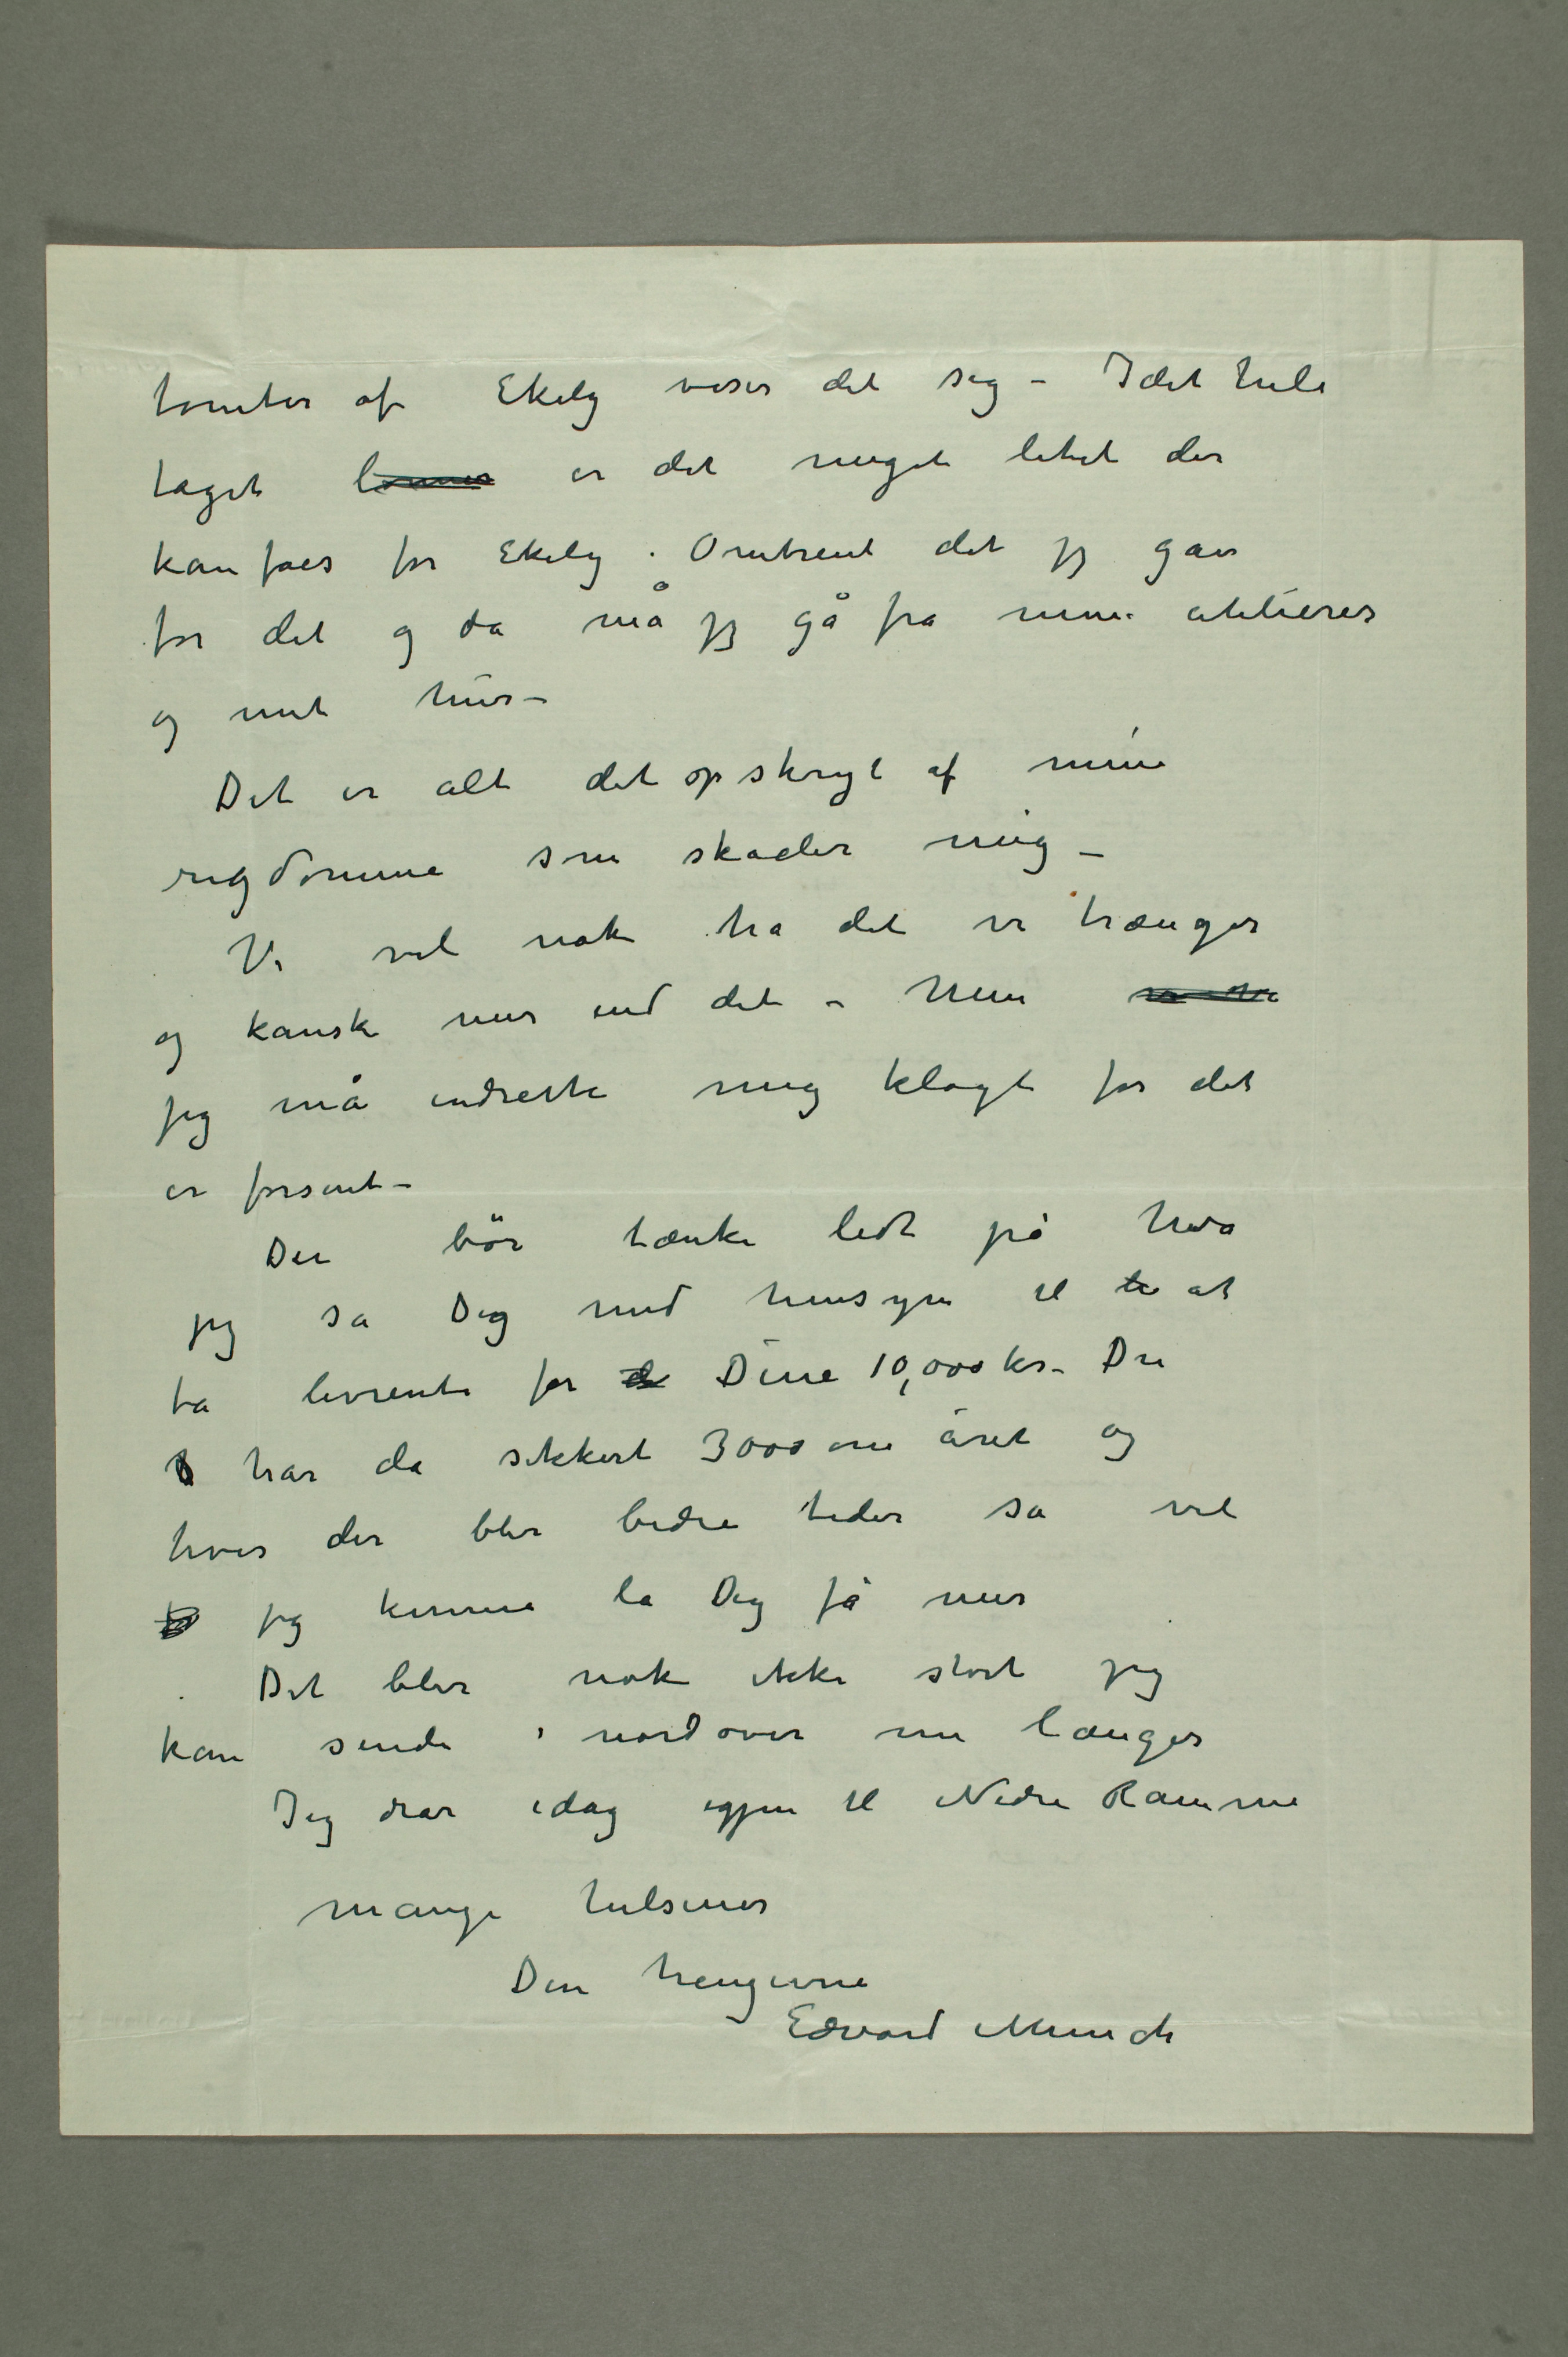 tomter af Ekely viser det sig – I det hele
taget er det meget litet der
kan fåes for Ekely. Omtrent det jeg gav
for det og da må jeg gå fra mine atelierer
og mit hus –
Det er alt det opskryt af mine
rigdomme som skader mig –
Vi vil nok ha det vi trænger
og kanske mer end det – Men
jeg må indrette mig klogt før det
er forsent –
Du bör tænke lidt på hva
jeg sa Dig med hensyn til at
ta livrente for Dine 10,000 kr – Du
har da sikkert 3000 om året og
hvis der blir bedre tider så vil
jeg kunne la Dig få mer
Det blir nok ikke stort jeg
kan sende nordover nu længer
Jeg drar idag igjen til Nedre Ramme
mange hilsener
Din hengivne
Edvard Munch